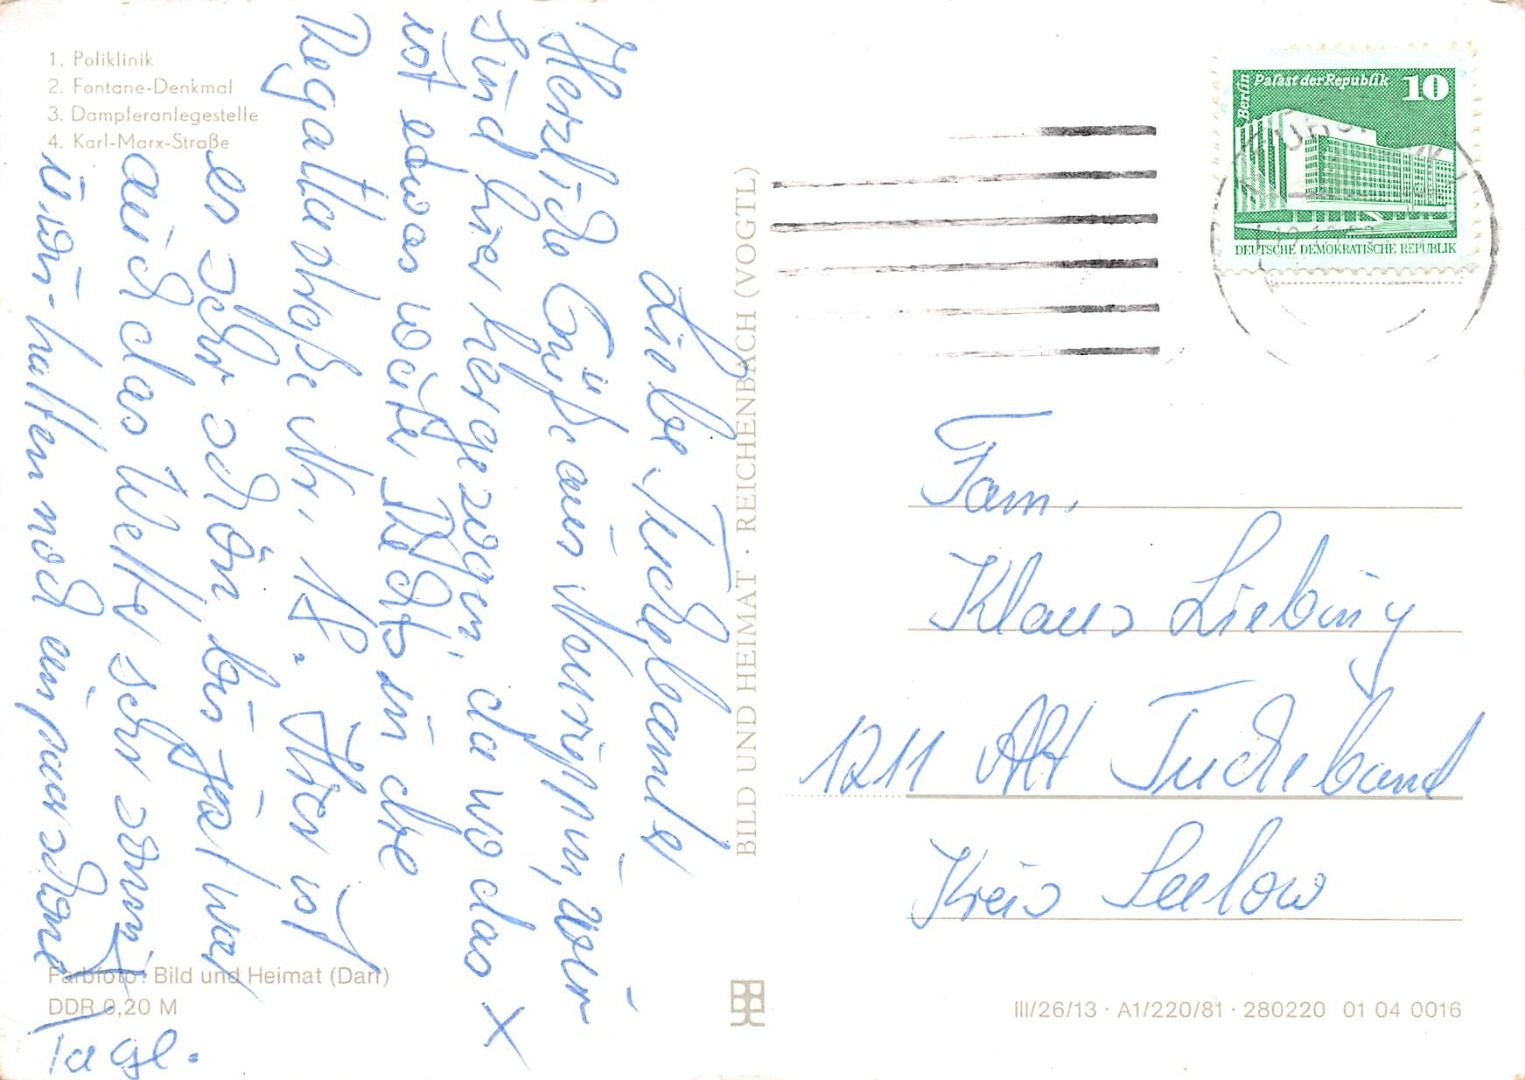 1. Poliklinik
2. Fontane-Denkmal
3. Dampferanlegestelle
4. Karl-Marx-Straße
Liebe Tuchebander
Herzliche Grüße aus Neuruppin, wir
sind hier hergezogen, da wo das X
ist etwas weiter Rechts in die
Regattastraße Nr. 18. Hier ist
es sehr schön, bis jetzt war
auch das Wetter sehr schön
u. wir hatten noch ein paar schöne
Tage.
Farbfoto: Bild und Heimat (Darr)
DDR 0,20 M
BILD UND HEIMAT · REICHENBACH (VOGTL)
Berlin Palast der Republik 10
DEUTSCHE DEMOKRATISCHE REPUBLIK
Fam.
Klaus Liebing
1211 Alt Tucheband
Kreis Seelow
III/26/13 · A1/220/81 · 280220 01 04 0016